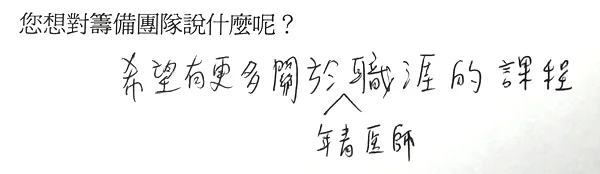 您想對籌備團隊說什麼呢？
希望有更多關於職涯的課程
年青医師